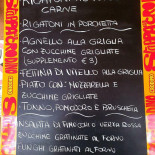 CARNE
RIGATONI IN PORCHETTA
AGNELLO ALLA GRIGLIA
CON ZUCCHINE GRIGLIATE
(SUPPLEMENTO €3)
FETTINA DI VITELLO ALLA GRIGLIA
PIATTO CON: MOZZARELLA E
ZUCCHINE GRIGLIATE
TONNO, POMODORO E BRUSCHETTA
INSALATA DI FINOCCHIO O VERZA ROSSA
ZUCCHINE GRATINATE AL FORNO
FUNGHI GRATINATI AL FORNO